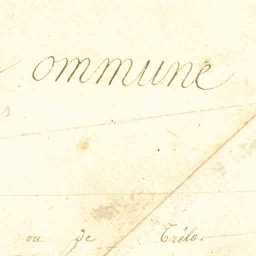 ommune
ou de Trélo.